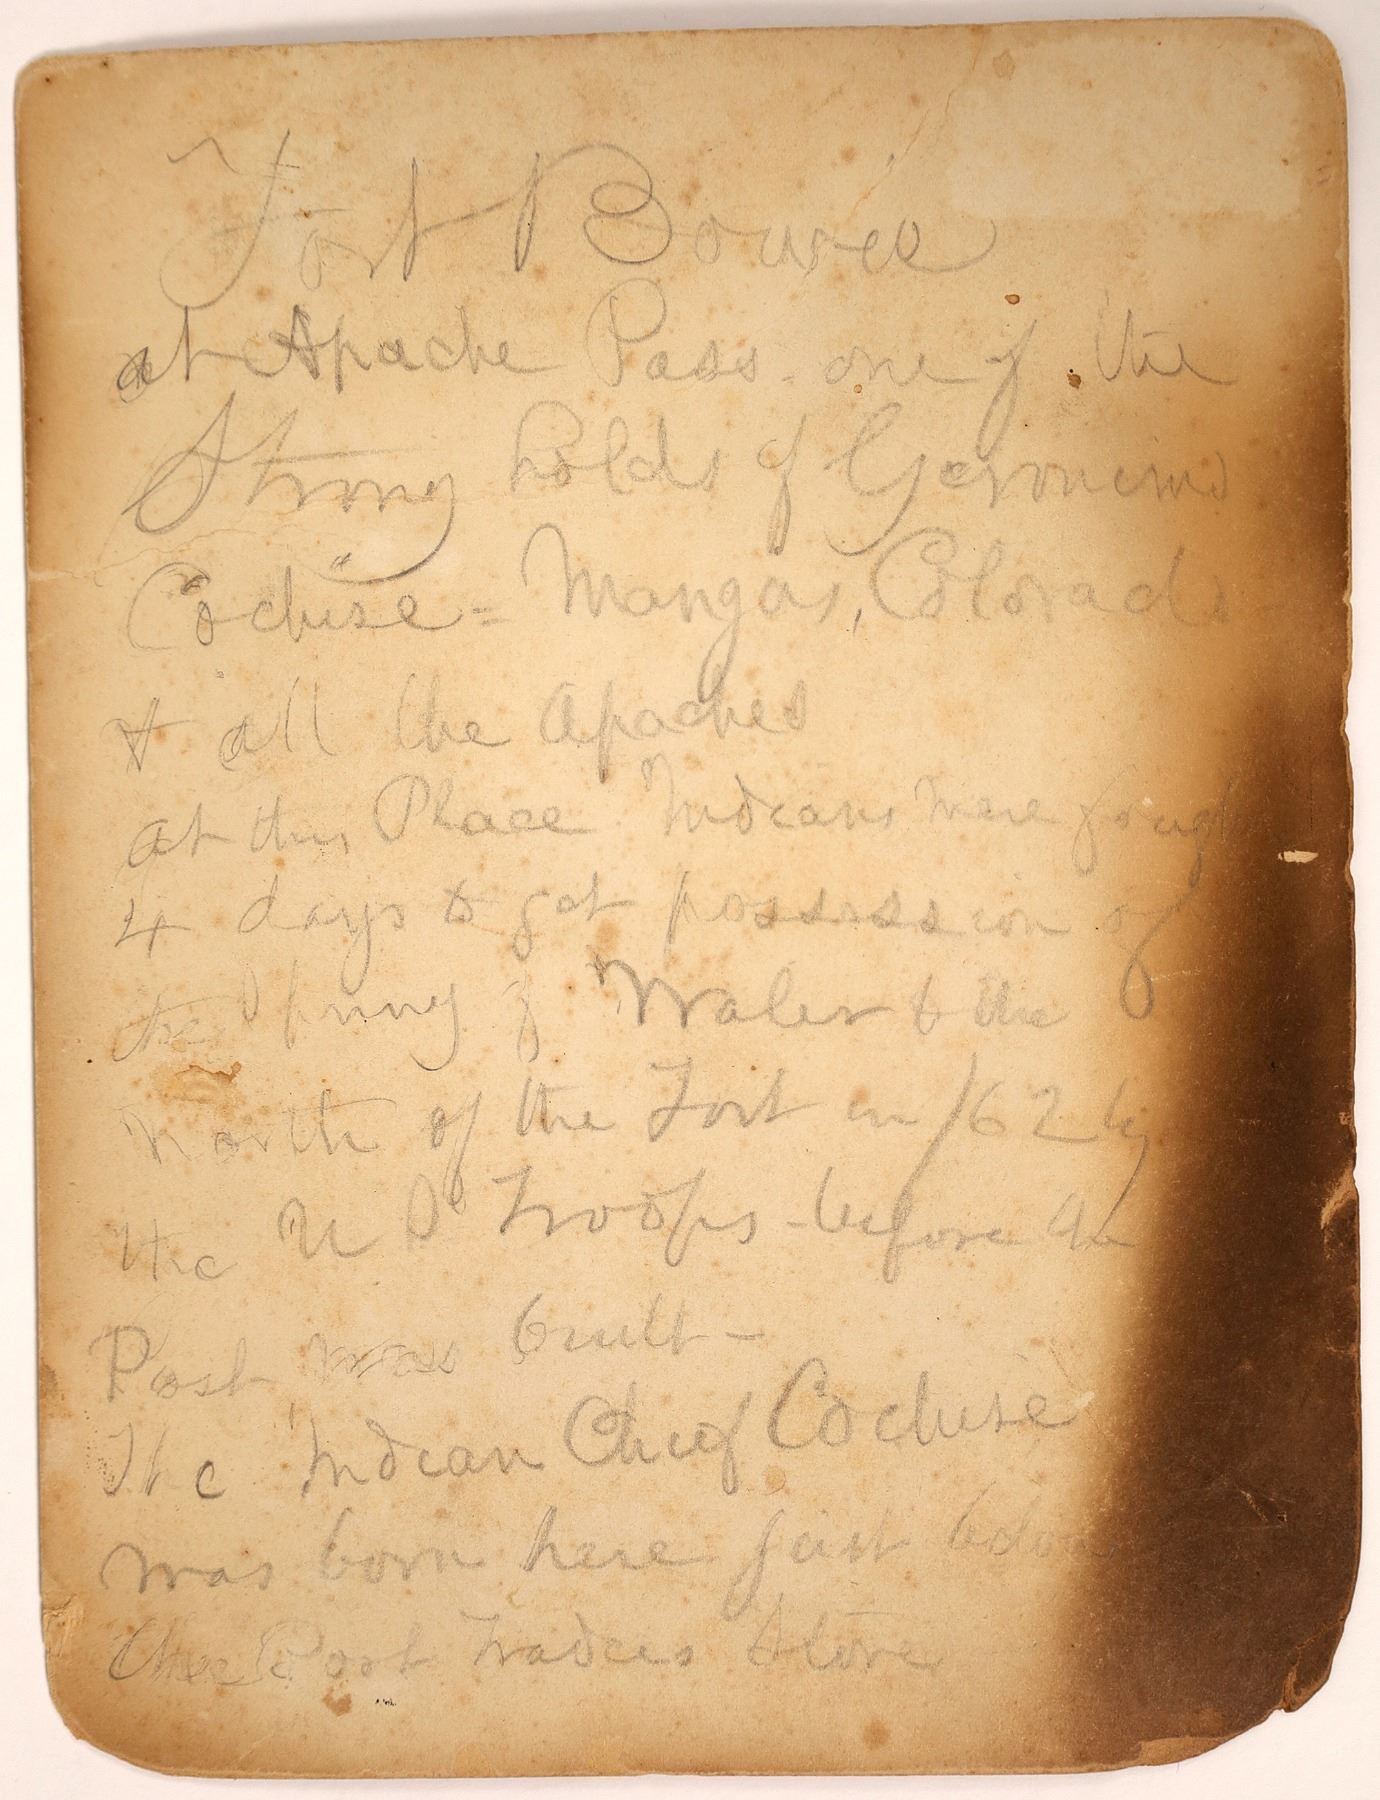 Fort Bowie
at Apache Pass. one of the
Strong holds of Geronimo
Cochise = Mangas, Colorado
& all the Apaches
at this Place Indians were fough
4 days to get possession of
the Spring of Water to the
North of the Fort in /62 by
the U S Troops - before the
Post was built -
The Indian Chief Cochise
was born here just below
the Post Traders Store